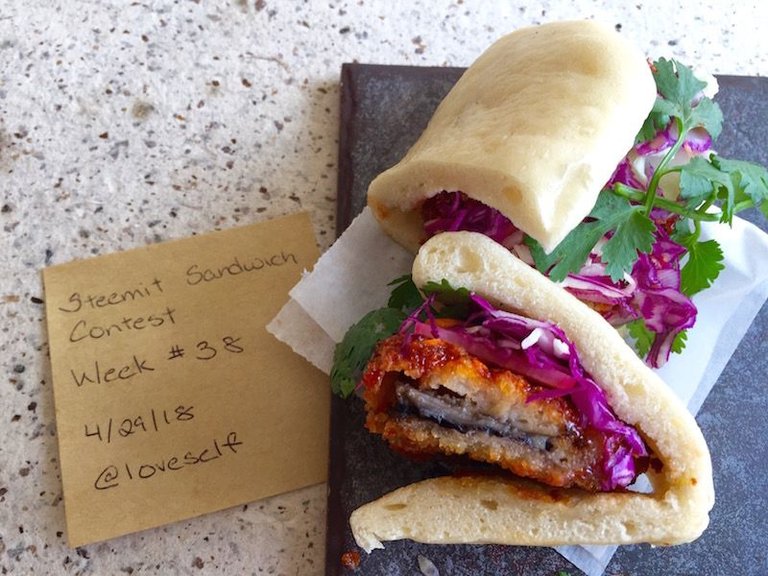 Steemit Sandwich
Contest
Week #38
4/29/18
@loveself